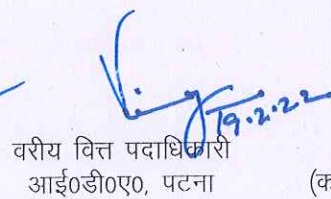 19.2.22
वरीय वित्त पदाधिकारी
आई०डी०ए०, पटना
(क